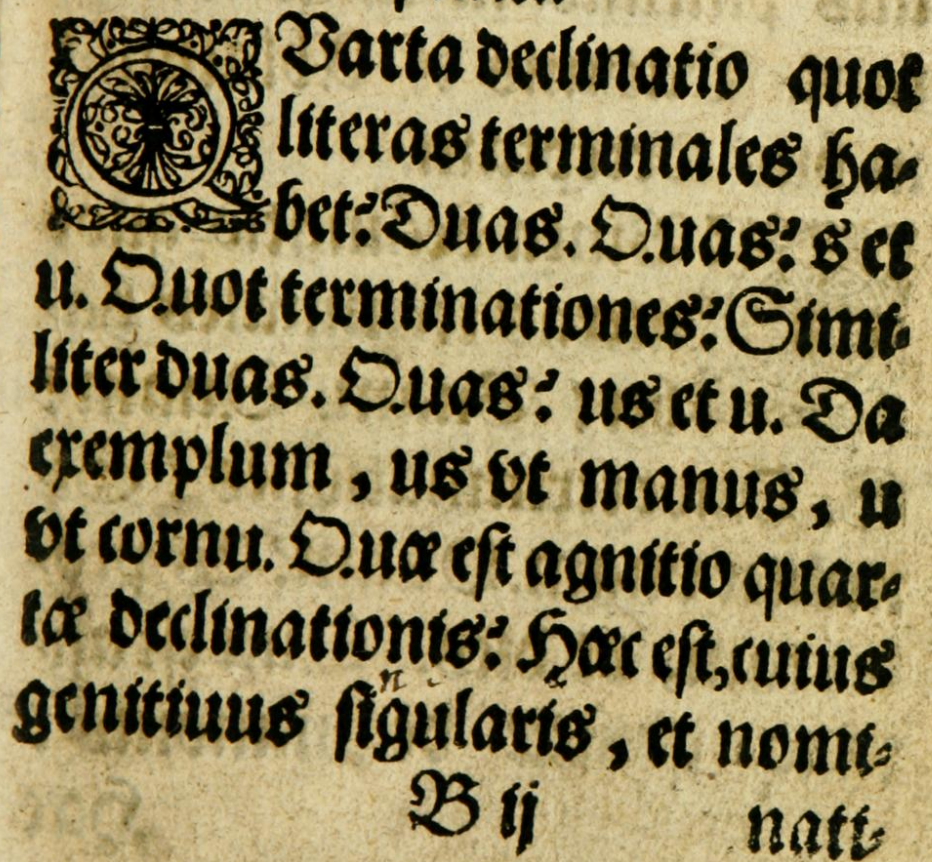 QVarta declinatio quot
literas terminales ha-
bet? Duas. Quas? s et
u. Quot terminationes? Simi-
liter duas. Quas? us et u. Da
exemplum, us vt manus, u
vt cornu. Quæ est agnitio quar-
tæ declinationis? Hæc est, cuius
n
genitiuus sigularis, et nomi-
B ij
nati-